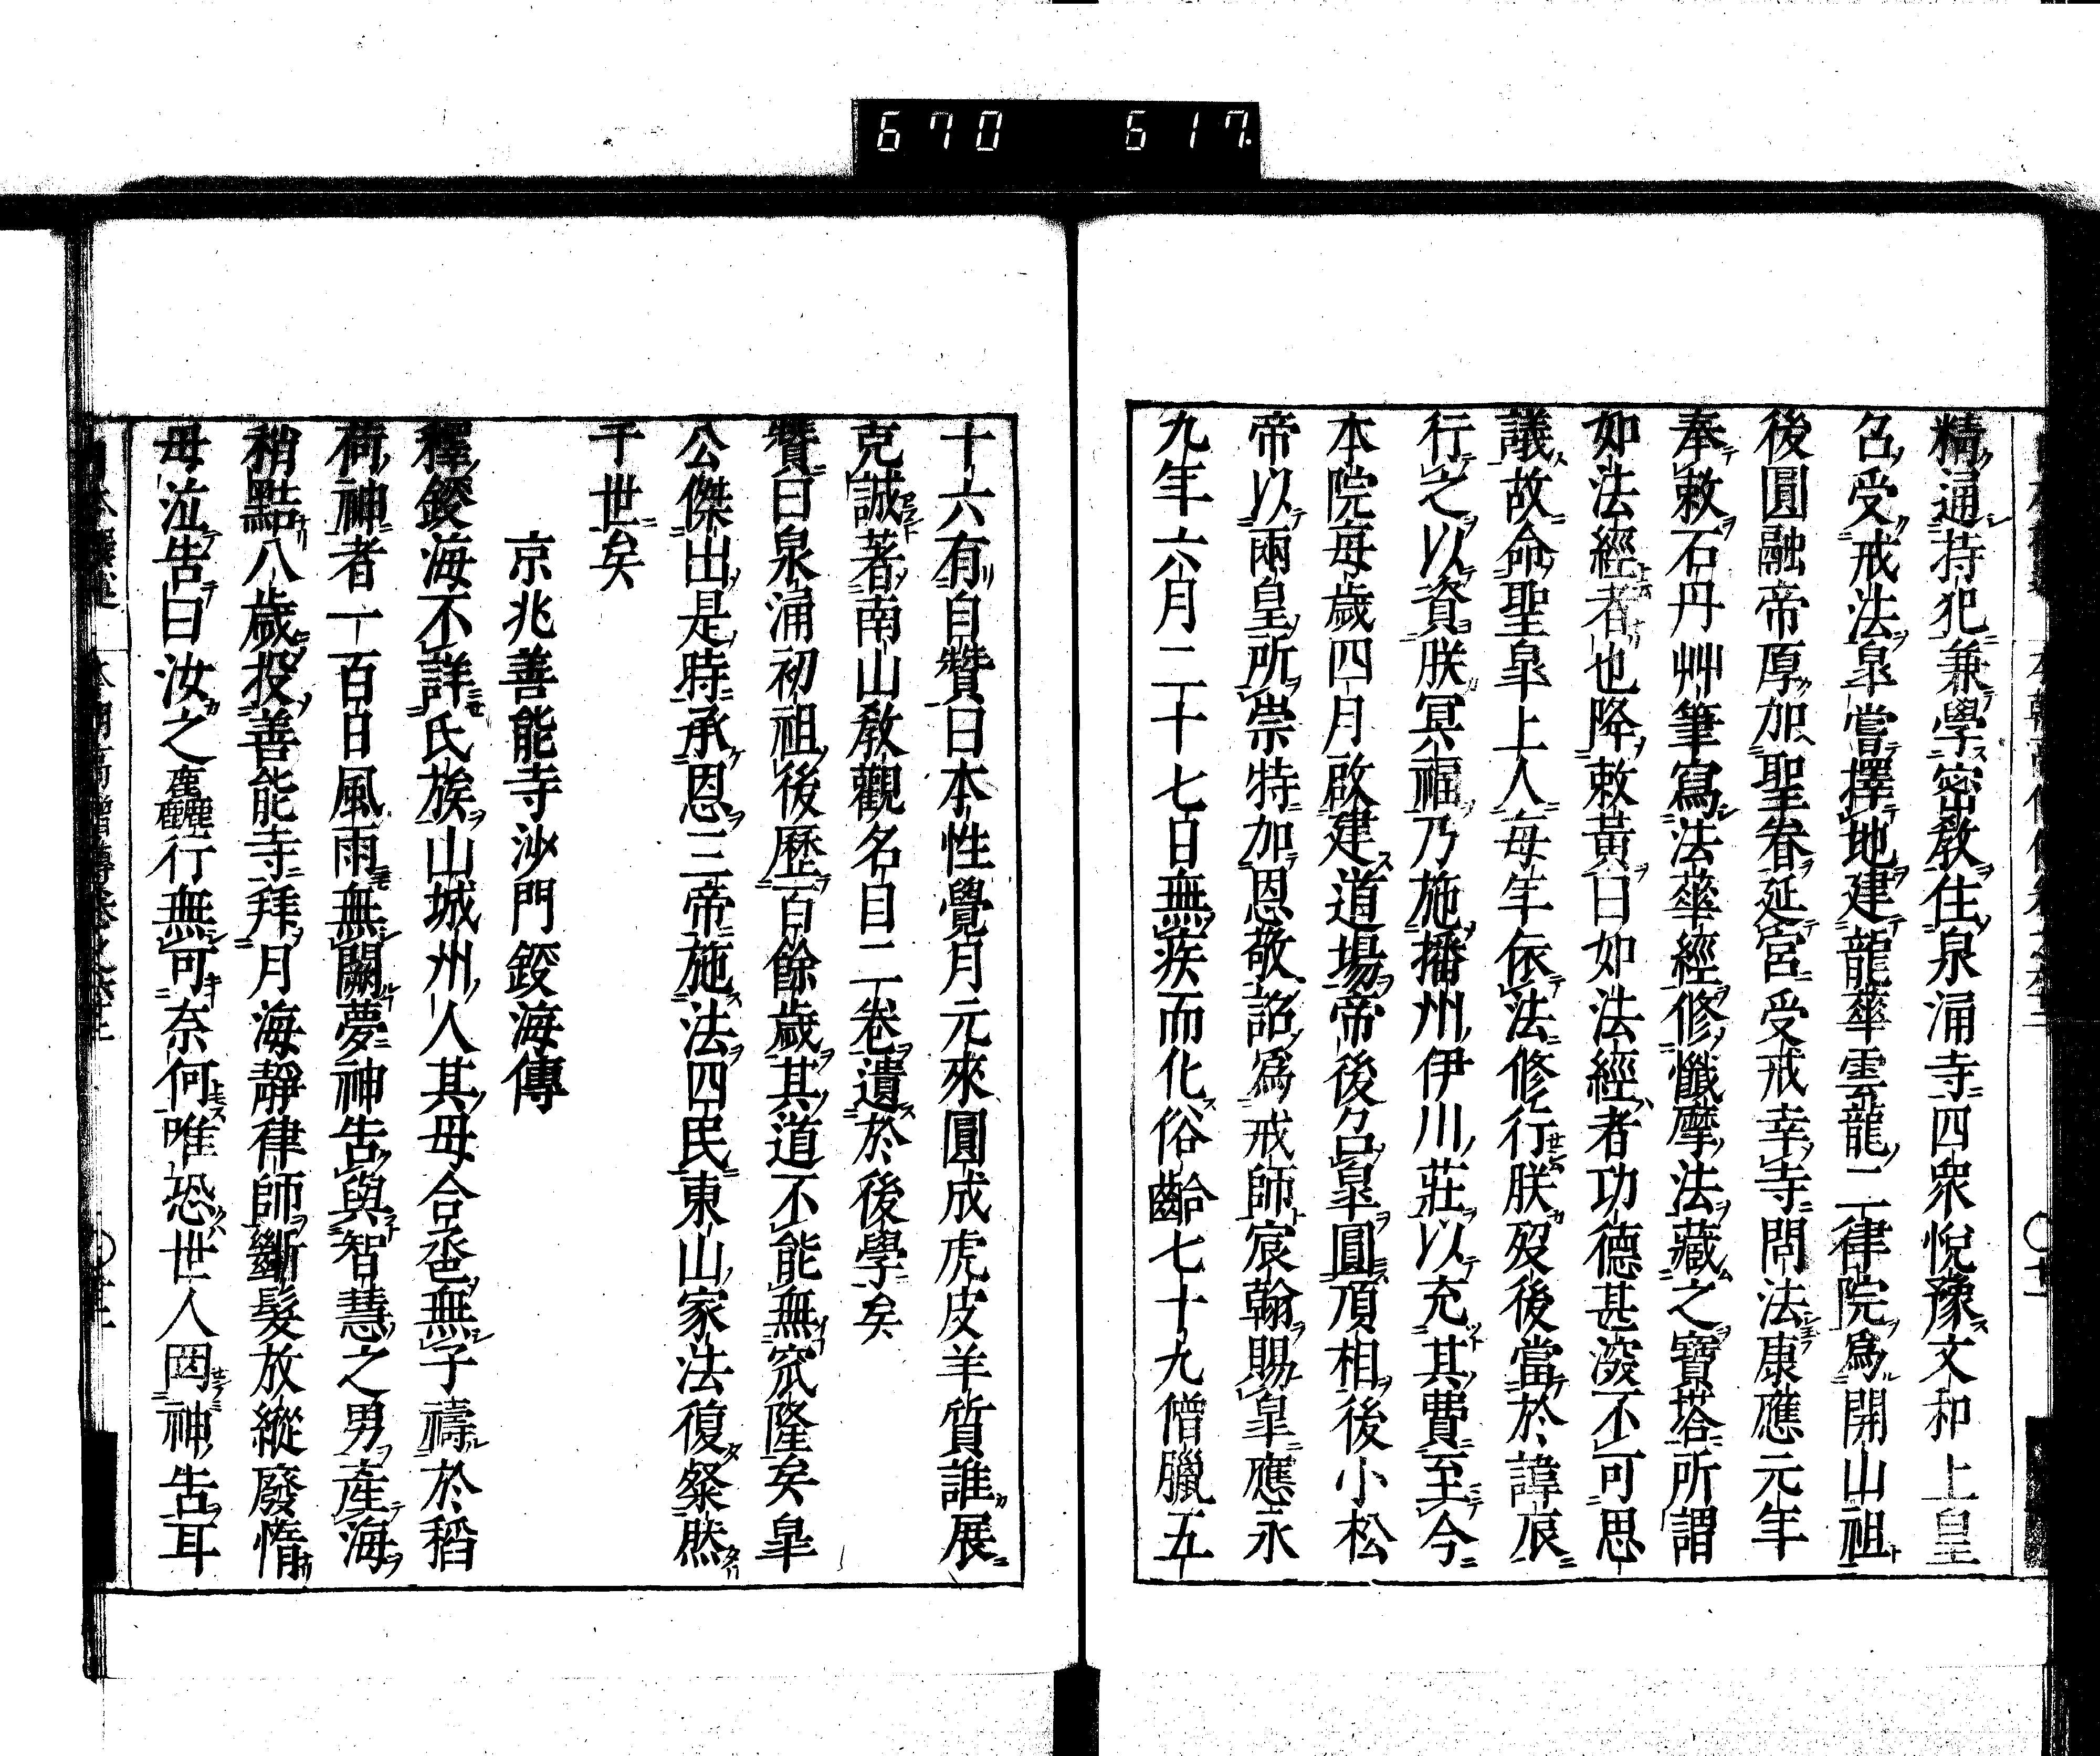 670 617.
精通持犯兼學密教住泉涌寺四衆悅豫文和上皇
召受戒法皐嘗擇地建龍華雲龍二律院爲開山祖
後圓融帝厚加聖眷延宮受戒幸寺問法康應元年
奉敕石丹艸筆寫法華經修懺摩法藏之寶塔所謂
如法經者也降敕黃曰如法經者功德甚深不可思
議故命聖皐上人每年依法修行朕歿後當於諱辰
行之以資朕冥福乃施播州伊川莊以充其費至今
本院每歲四月啟建道場帝後召皐圓頂相後小松
帝以兩皇所崇特加恩敬詔爲戒師宸翰賜皐應永
九年六月二十七日無疾而化俗齡七十九僧臘五
十六有自贊曰本性覺月元來圓成虎皮羊質誰展
克誠著南山教觀名目二卷遺於後學矣
贊曰泉涌初祖後歷百餘歲其道不能無窊隆矣皐
公傑出是時承恩三帝施法四民東山家法復粲然
于世矣
京兆善能寺沙門鋄海傳
釋鋄海不詳氏族山城州人其母合巹無子禱於稻
荷神者一百日風雨無闕夢神告與智慧之男產海
稍點八歲投善能寺拜月海靜律師斷髮放縱廢惰
母泣告曰汝之麤行無可奈何唯恐世人罔神告耳